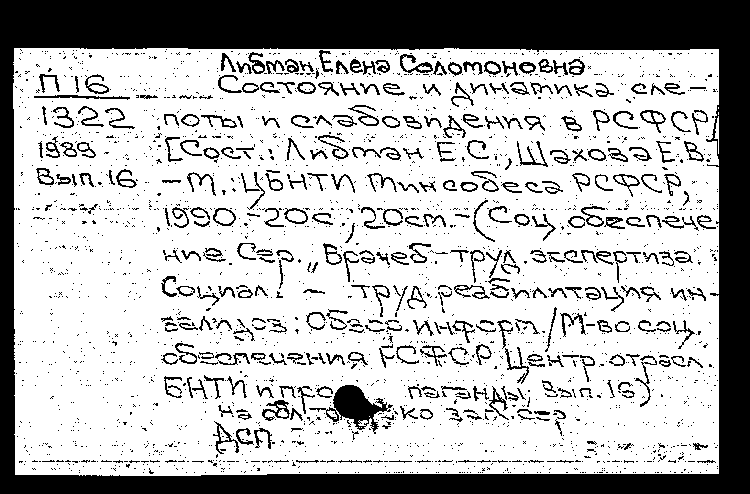 Либман, Елена Соломоновна
П 16
Состояние и динамика сле-
1322
поты и слабовидения в РСФСР/
1989
[Сост.: Либман Е.С., Шахова Е.В.
Вып. 16
– М.: ЦБНТИ Минсобеса РСФСР,
1990.- 20с.; 20см. - (Соц. обеспече-
ние. Сер. „Врачеб.- труд. экспертиза.
Социал. - труд. реабилитация ин-
валидов: Обзор. информ. / М-во соц.
обеспечения РСФСР. Центр. отрасл.
БНТИ и пропаганды; Вып. 16).
На обл. только загл. сер.
ДСП